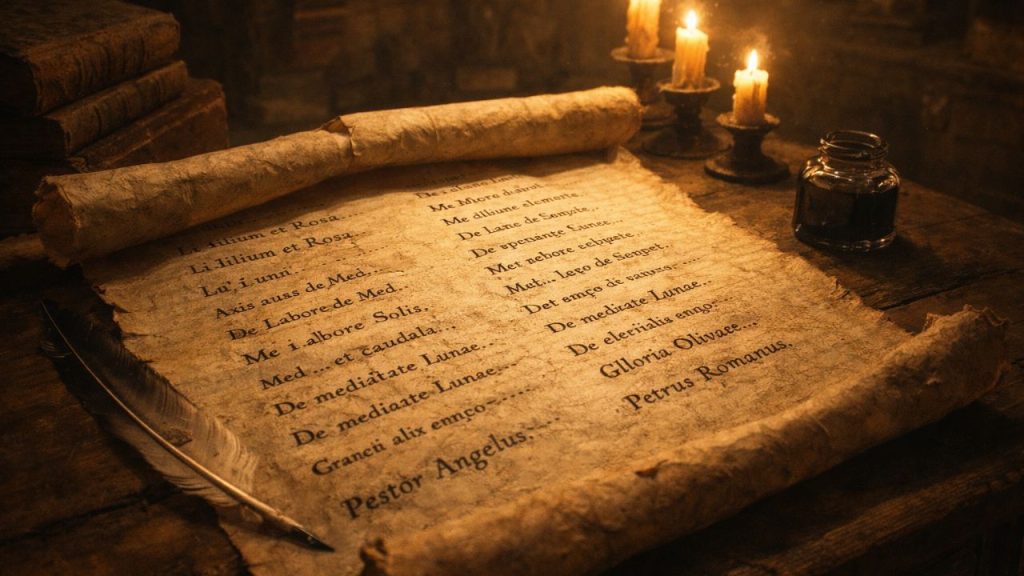 Li lilium et Rosa.....
Li lilium et Rosa...
Lu' i unni.....
Axis auss de Med....
De Labore de Med...
Me i albore Solis,
Med ... et caudala...
De mediatate Lunae...
De mediaate Lunae....
Graneti alix emnço-......
Pestor Angelus,....
Me Miore
Me dilune elemerte...
De Lane de Sempate..
De epenançe Lunce...
Met nebore ecbpate...
Mut... leço de Senpet,
Det emço de
De mediate Lunae...
De elerialis engo:...
Glloria Olivace...
Petrus Romanus.